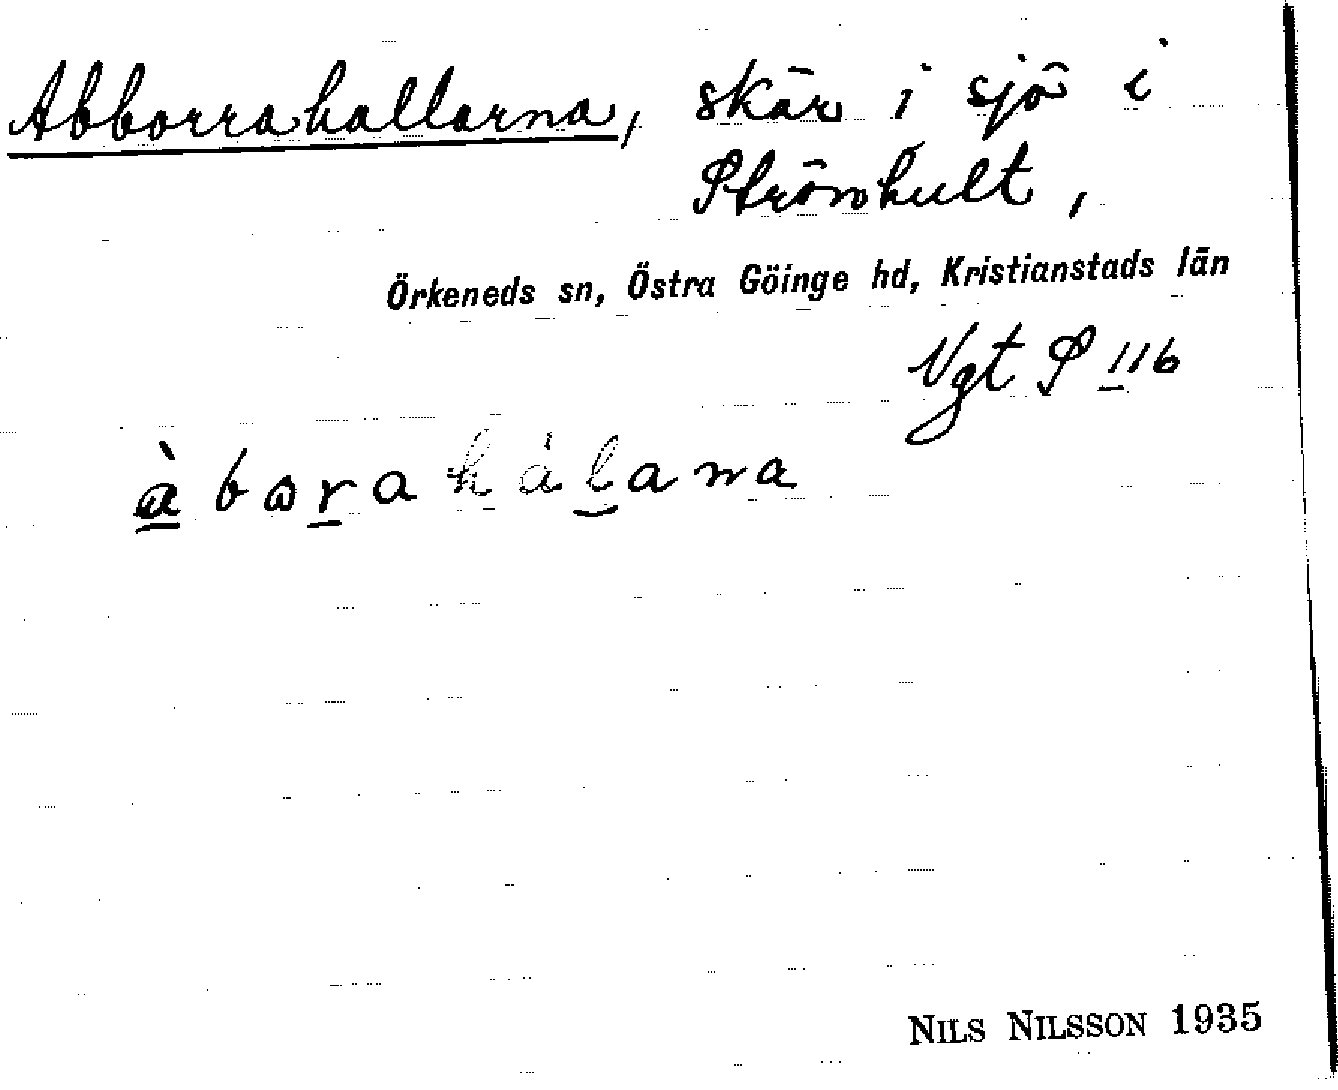 Abborrahallarna, skär i sjö i
Strönhult,
Örkeneds sn, Östra Göinge hd, Kristianstads län
Vgt S 116
àborahàlana
NILS NILSSON 1935